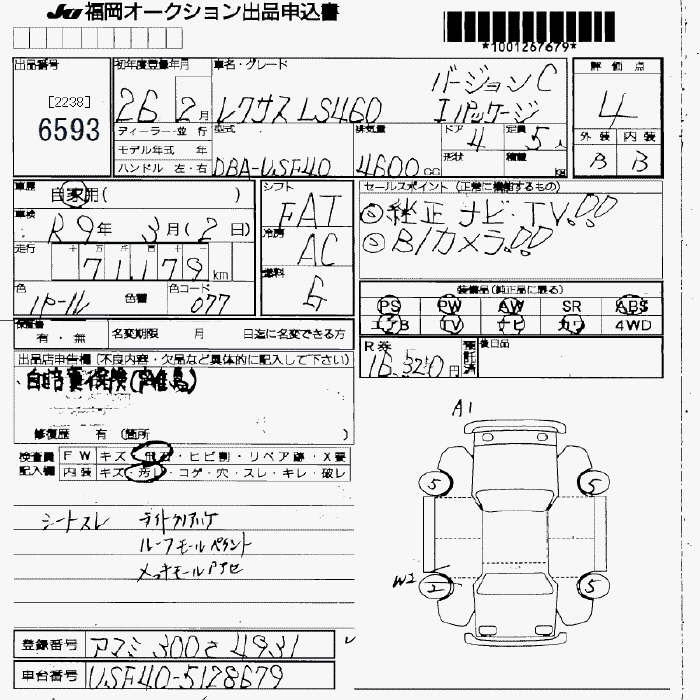 JU 福岡オークション出品申込書
*1001267679*
出品番号 初年度登録年月 車名・グレード 評価点
[2238]
6593
26 2月 レクサス LS460 バージョンC
Iパッケージ
4
ディーラー・並行 型式 排気量 ドア 定員 外装 内装
モデル年式 年 4 5人
ハンドル 左・右 DBA-USF40 4600cc 形状 積量 kg B B
車歴 自家用( ) シフト セールスポイント (正常に機能するもの)
FAT
車検 R9年 3月(2日) 冷房 AC
◎純正ナビ・TV!!
◎B/カメラ!!
走行 十 万 千 百 十 一
71,179 km 燃料 G
色 パール 色替 色コード 077
装備品(純正品に限る)
PS PW AW SR ABS
エアB TV ナビ カワ 4WD
有・無 名変期限 月 日迄に名変できる方
R券 16,320円 預託済 後日品
出品店申告欄(不良内容・欠品など具体的に記入して下さい)
自賠責保険(離島)
修復歴 有 (箇所 )
検査員 FW キズ・飛石・ヒビ割・リペア跡・X要
記入欄 内装 キズ・汚レ・コゲ・穴・スレ・キレ・破レ
シートスレ ライトクリアハゲ
ルーフモール
メッキモール
A1
5 5
W2 2 5
登録番号 アマミ 300さ 4931
車台番号 USF40-5128679